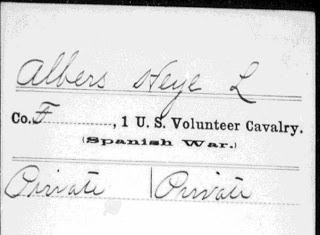 Albers Heye L
Co. F, 1 U. S. Volunteer Cavalry.
(Spanish War.)
Private | Private